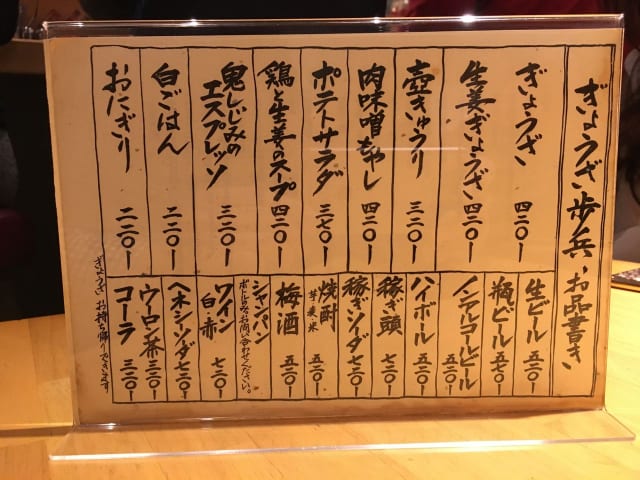 ぎょうざ歩兵 お品書き
ぎょうざ 四二〇ー
生姜ぎょうざ 四二〇ー
壺きゅうり 三二〇ー
肉味噌もやし 四二〇ー
ポテトサラダ 三七〇ー
鶏と生姜のスープ 四二〇ー
鬼しじみのエスプレッソ 三二〇ー
白ごはん 二二〇ー
おにぎり 二二〇ー
生ビール 五二〇ー
瓶ビール 五七〇ー
ノンアルコールビール 五二〇ー
ハイボール 五二〇ー
稼ぎ頭 七二〇ー
稼ぎソイダ 七二〇ー
焼酎 芋・麦・米 五二〇ー
梅酒 五二〇ー
シャンパン
ボトルのみお問い合わせください。
ワイン 白・赤 七二〇ー
ヘネシーソーダ 七二〇ー
ウーロン茶 三二〇ー
コーラ 三二〇ー
ぎょうざ お持ち帰りできます